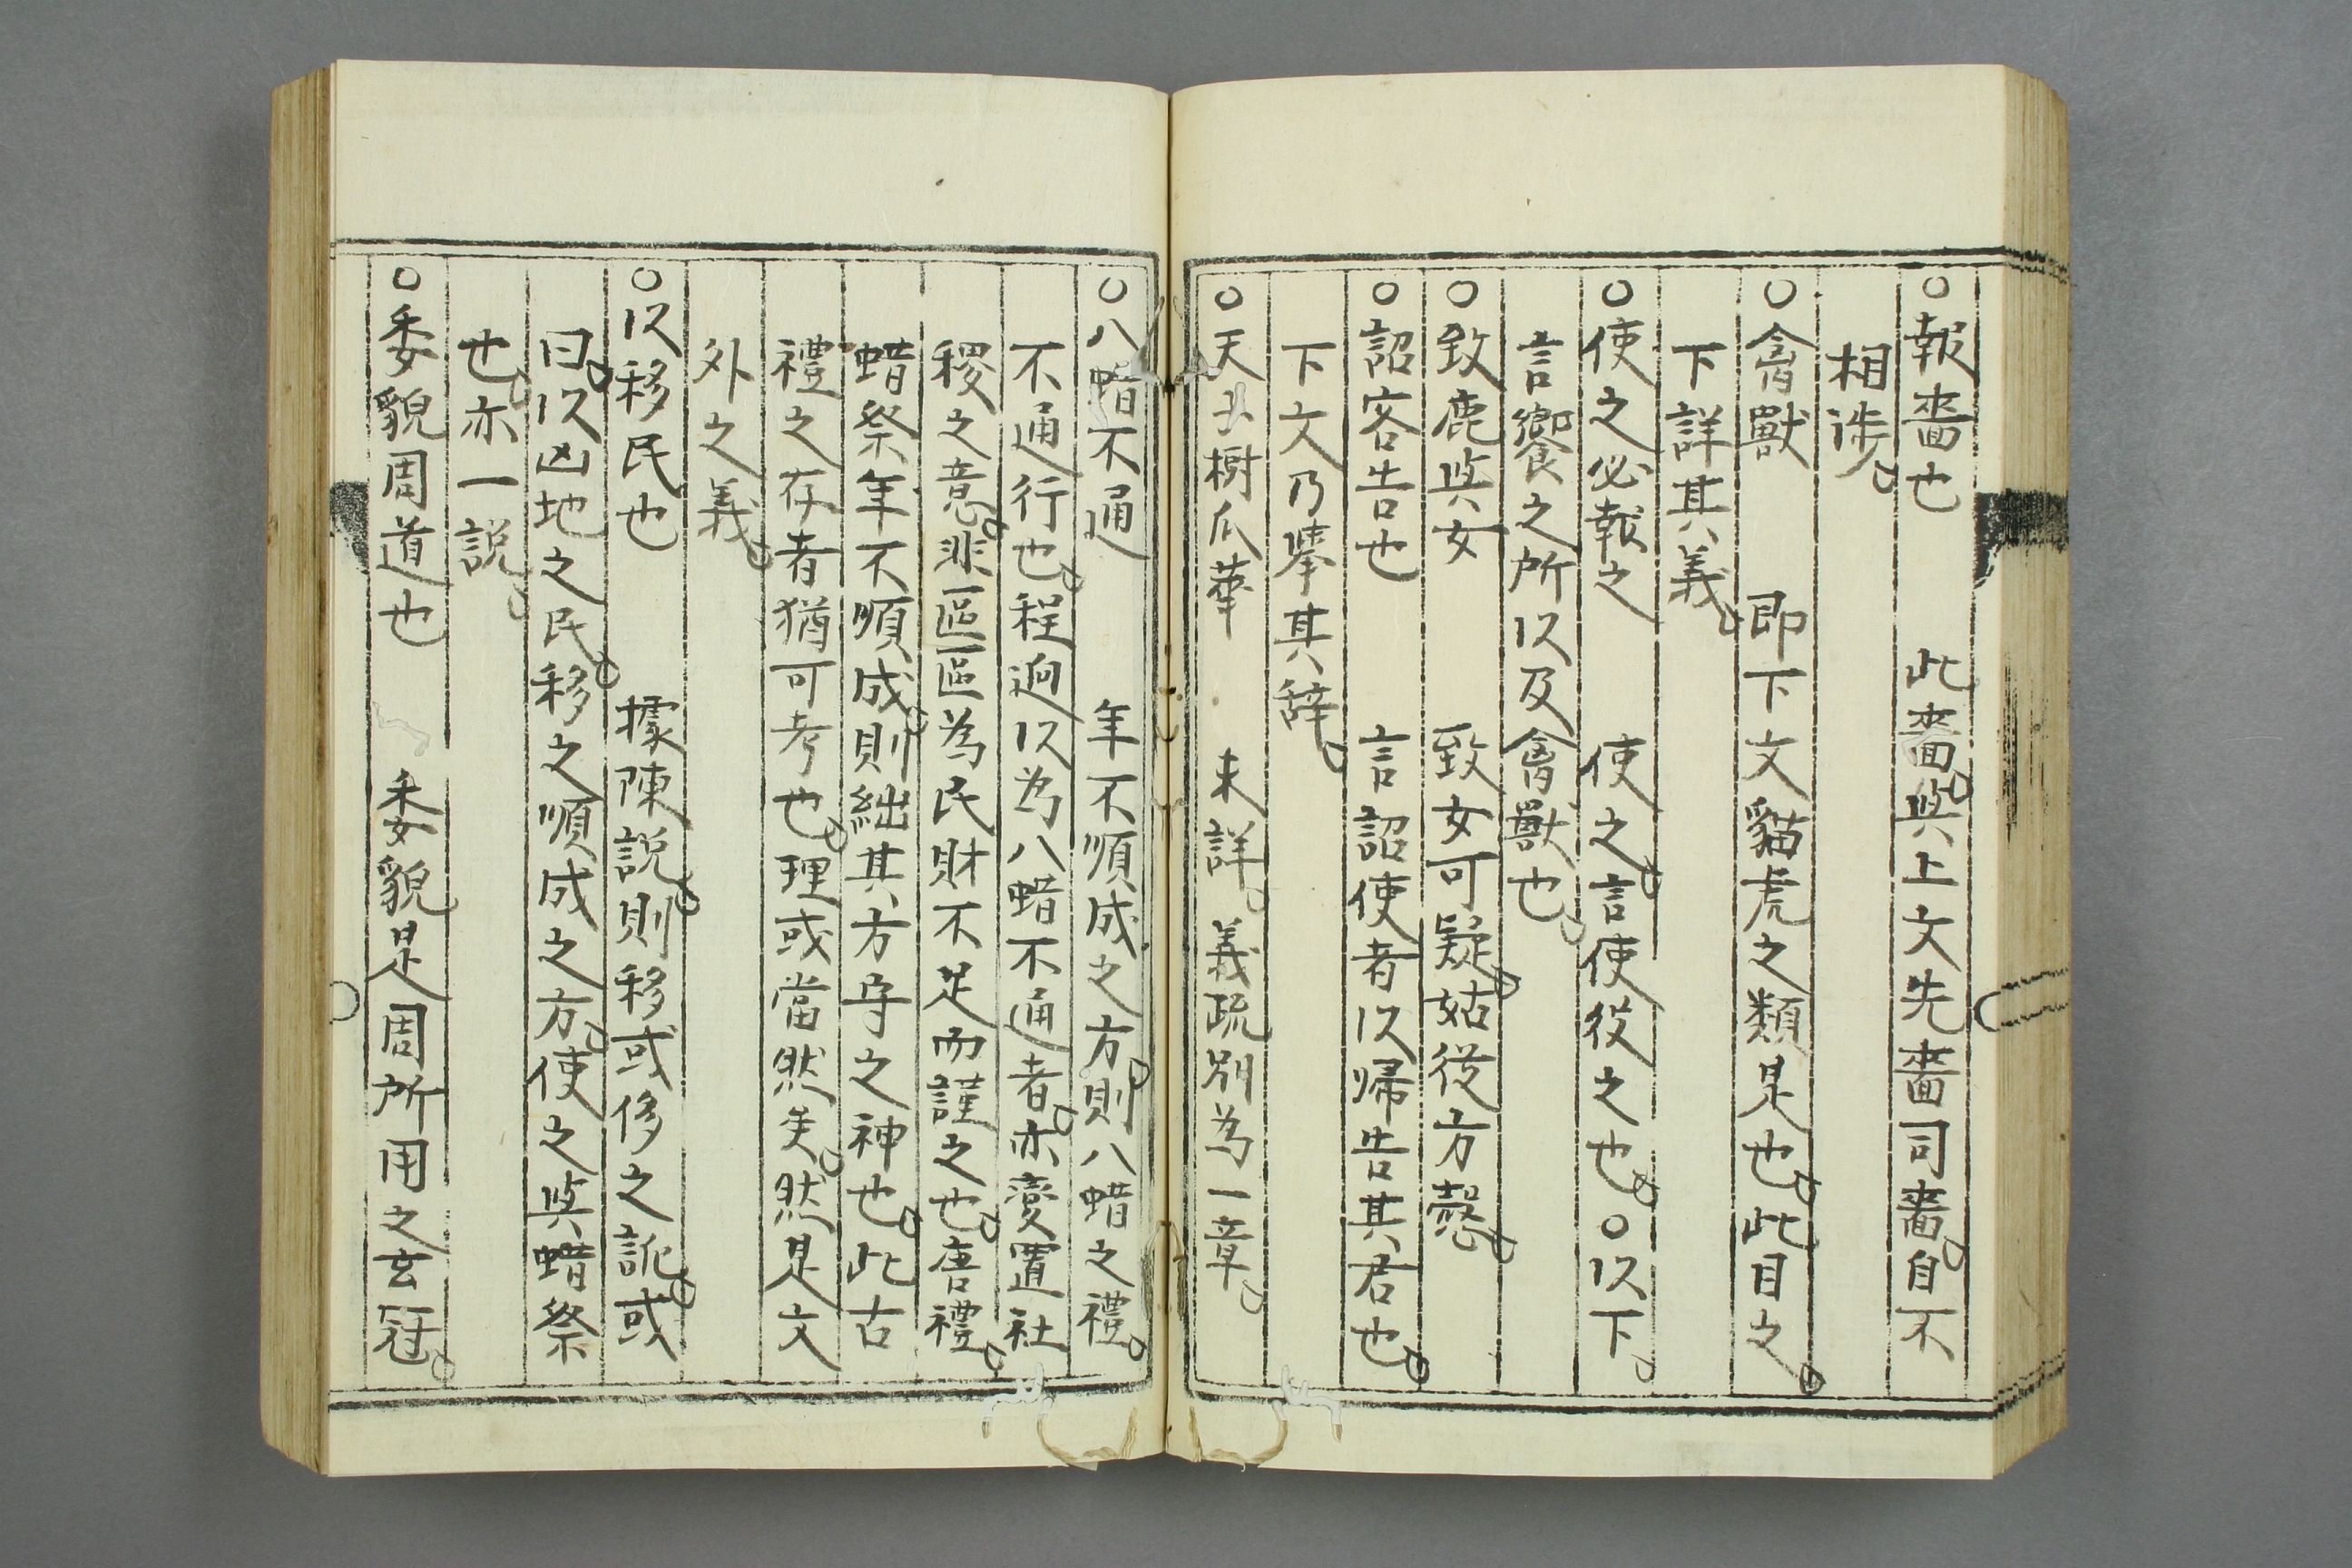 ○報嗇也 此嗇與上文先嗇司嗇自不
相渉
○禽獸 即下文貓虎之類是也此目之
下詳其義
○使之必報之 使之言使役之也○以下
言饗之所以及禽獸也
○致鹿與女 致女可疑姑從方愨
○詔客告也 言詔使者以帰告其君也
下文乃挙其辞
○天子樹瓜華 未詳義疏別為一章
○八蜡不通 年不順成之方則八蜡之禮
不通行也程逈以為八蜡不通者亦變置社
稷之意非區區為民財不足而謹之也唐禮
蜡祭年不順成則絀其方守之神也此古
禮之存者猶可考也理或當然矣然是文
外之義
○以移民也 據陳説則移或侈之訛或
曰以凶地之民移之順成之方使之與蜡祭
也亦一説
○委貌周道也 委貌是周所用之玄冠